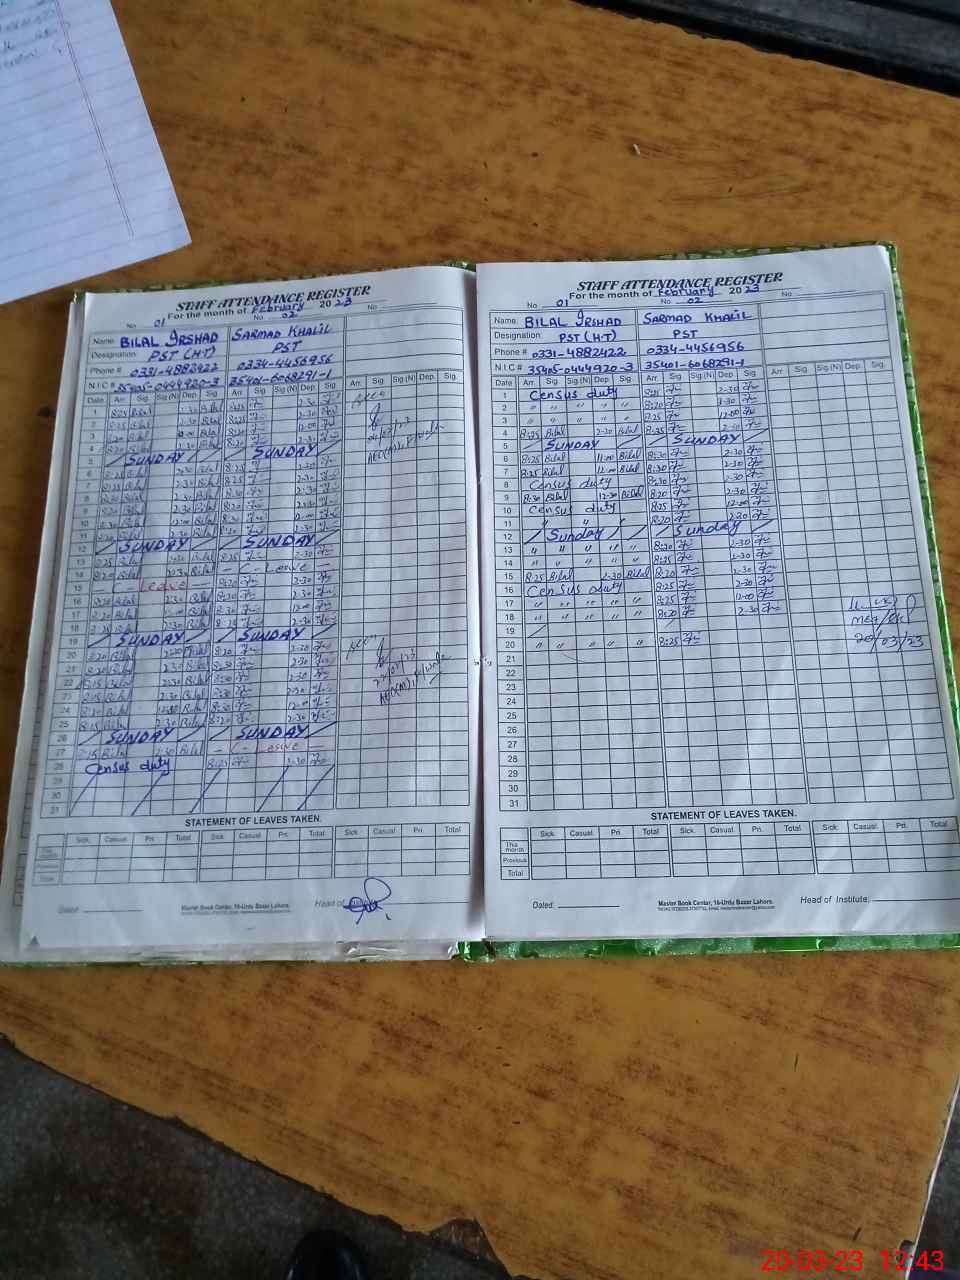 STAFF ATTENDANCE REGISTER
For the month of February 2023
No 01 No 02 No
Name: BILAL IRSHAD SARMAD KHALIL
Designation: PST (H.T) PST
Phone # 0331-4882422 0334-4456956
N.I.C # 35405-0444920-3 35401-6068291-1
Date Arr. Sig. Sig (N) Dep. Sig. Arr. Sig. Sig (N) Dep. Sig. Arr. Sig. Sig (N) Dep. Sig.
1 8:25 Bilal 2:30 Bilal 8:25 2-30
2 8:25 Bilal 2-30 Bilal 8:25 2-30
3 8:20 Bilal 12-00 Bilal 8:20 12-00
4 8:20 Bilal 2:30 Bilal 8:20 2-30
5 SUNDAY SUNDAY
6 8:25 Bilal 2:30 Bilal 8:25 2-30
7 8:25 Bilal 2:30 Bilal 8:25 2-30
8 8:20 Bilal 2:30 Bilal 8:30 2-30
9 8:20 Bilal 2:30 Bilal 8:20 2:30
10 8:20 Bilal 12:00 Bilal 8:20 12-00
11 Bilal 2:30 Bilal 8:20 2-30
12 SUNDAY SUNDAY
13 8:25 Bilal 2:30 Bilal 8:25 2-30
14 8:20 Bilal 2:30 Bilal - C - Leave -
15 Leave 8:20 2:30
16 8:20 Bilal 2:30 Bilal 8:30 2-30
17 8:20 Bilal 12:00 Bilal 8:30 12:00
18 8:25 Bilal 2:30 Bilal 8:25 2-30
19 SUNDAY SUNDAY
20 8:20 Bilal 2:30 Bilal 8:20 2-30
21 8:20 Bilal 2:30 Bilal 8:30 2-30
22 8:15 Bilal 2:30 Bilal 8:30 2-30
23 8:15 Bilal 2:30 Bilal 8:30 2-30
24 8:20 Bilal 12:00 Bilal 8:30 12-00
25 8:15 Bilal 2:30 Bilal 8:20 2-30
26 SUNDAY SUNDAY
27 8:15 Bilal 2:30 Bilal - C - Leave -
28 Census duty 8:25 2:30
29
30
31
STATEMENT OF LEAVES TAKEN.
Sick. Casual. Pri. Total Sick. Casual. Pri. Total Sick. Casual. Pri. Total
This month
Previous
Total
Dated: Master Book Center, 16-Urdu Bazar Lahore. Head of
STAFF ATTENDANCE REGISTER
For the month of February 2023
No. 01 No. 02 No.
Name: BILAL IRSHAD SARMAD KHALIL
Designation: PST (H.T) PST
Phone # 0331-4882422 0334-4456956
N.I.C # 35405-0444920-3 35401-6068291-1
Date Arr. Sig Sig (N) Dep. Sig. Arr. Sig Sig (N) Dep Sig. Arr. Sig. Sig (N) Dep. Sig.
1 Census duty 8:25 2-30
2 " " " " " 8:20 2-30
3 " " " " " 8:25 12:00
4 8:25 Bilal 2-30 Bilal 8:25 2-30
5 SUNDAY SUNDAY
6 8:25 Bilal 11:00 Bilal 8:30 2-30
7 8:25 Bilal 12:00 Bilal 8:30 2-30
8 Census duty 8:30 2-30
9 8:30 Bilal 12-30 Bilal 8:20 2-30
10 Census duty 8:25 12:00
11 " " 8:20 2:20
12 Sunday Sunday
13 " " " " " 8:20 2-30
14 " " " " " 8:25 2-30
15 8:25 Bilal 2-30 Bilal 8:20 2-30
16 Census duty 8:25 2-30
17 " " " " " 8:25 12:00
18 " " " " " 8:20 2-30
19
20 " " " " 8:25
21
22
23
24
25
26
27
28
29
30
31
MEA
20/03/23
STATEMENT OF LEAVES TAKEN.
Sick. Casual. Pri. Total Sick. Casual. Pri. Total Sick. Casual. Pri. Total
This month
Previous
Total
Dated: Master Book Center, 16-Urdu Bazar Lahore. Head of Institute:
20-03-23 12:43